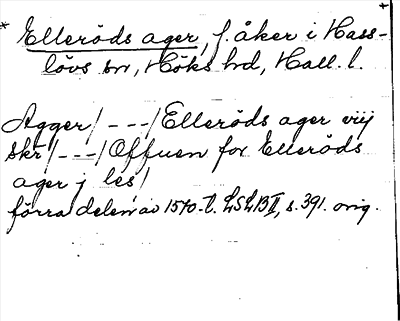 * Elleröds ager, f. åker i Hass-
lövs sn, Höks hd, Hall. l.
Agger/---/Elleröds ager viij
skr/---/Offuen for Elleröds
ager j les/
förra delen av 1570-t. LSLB II, s. 391. orig.